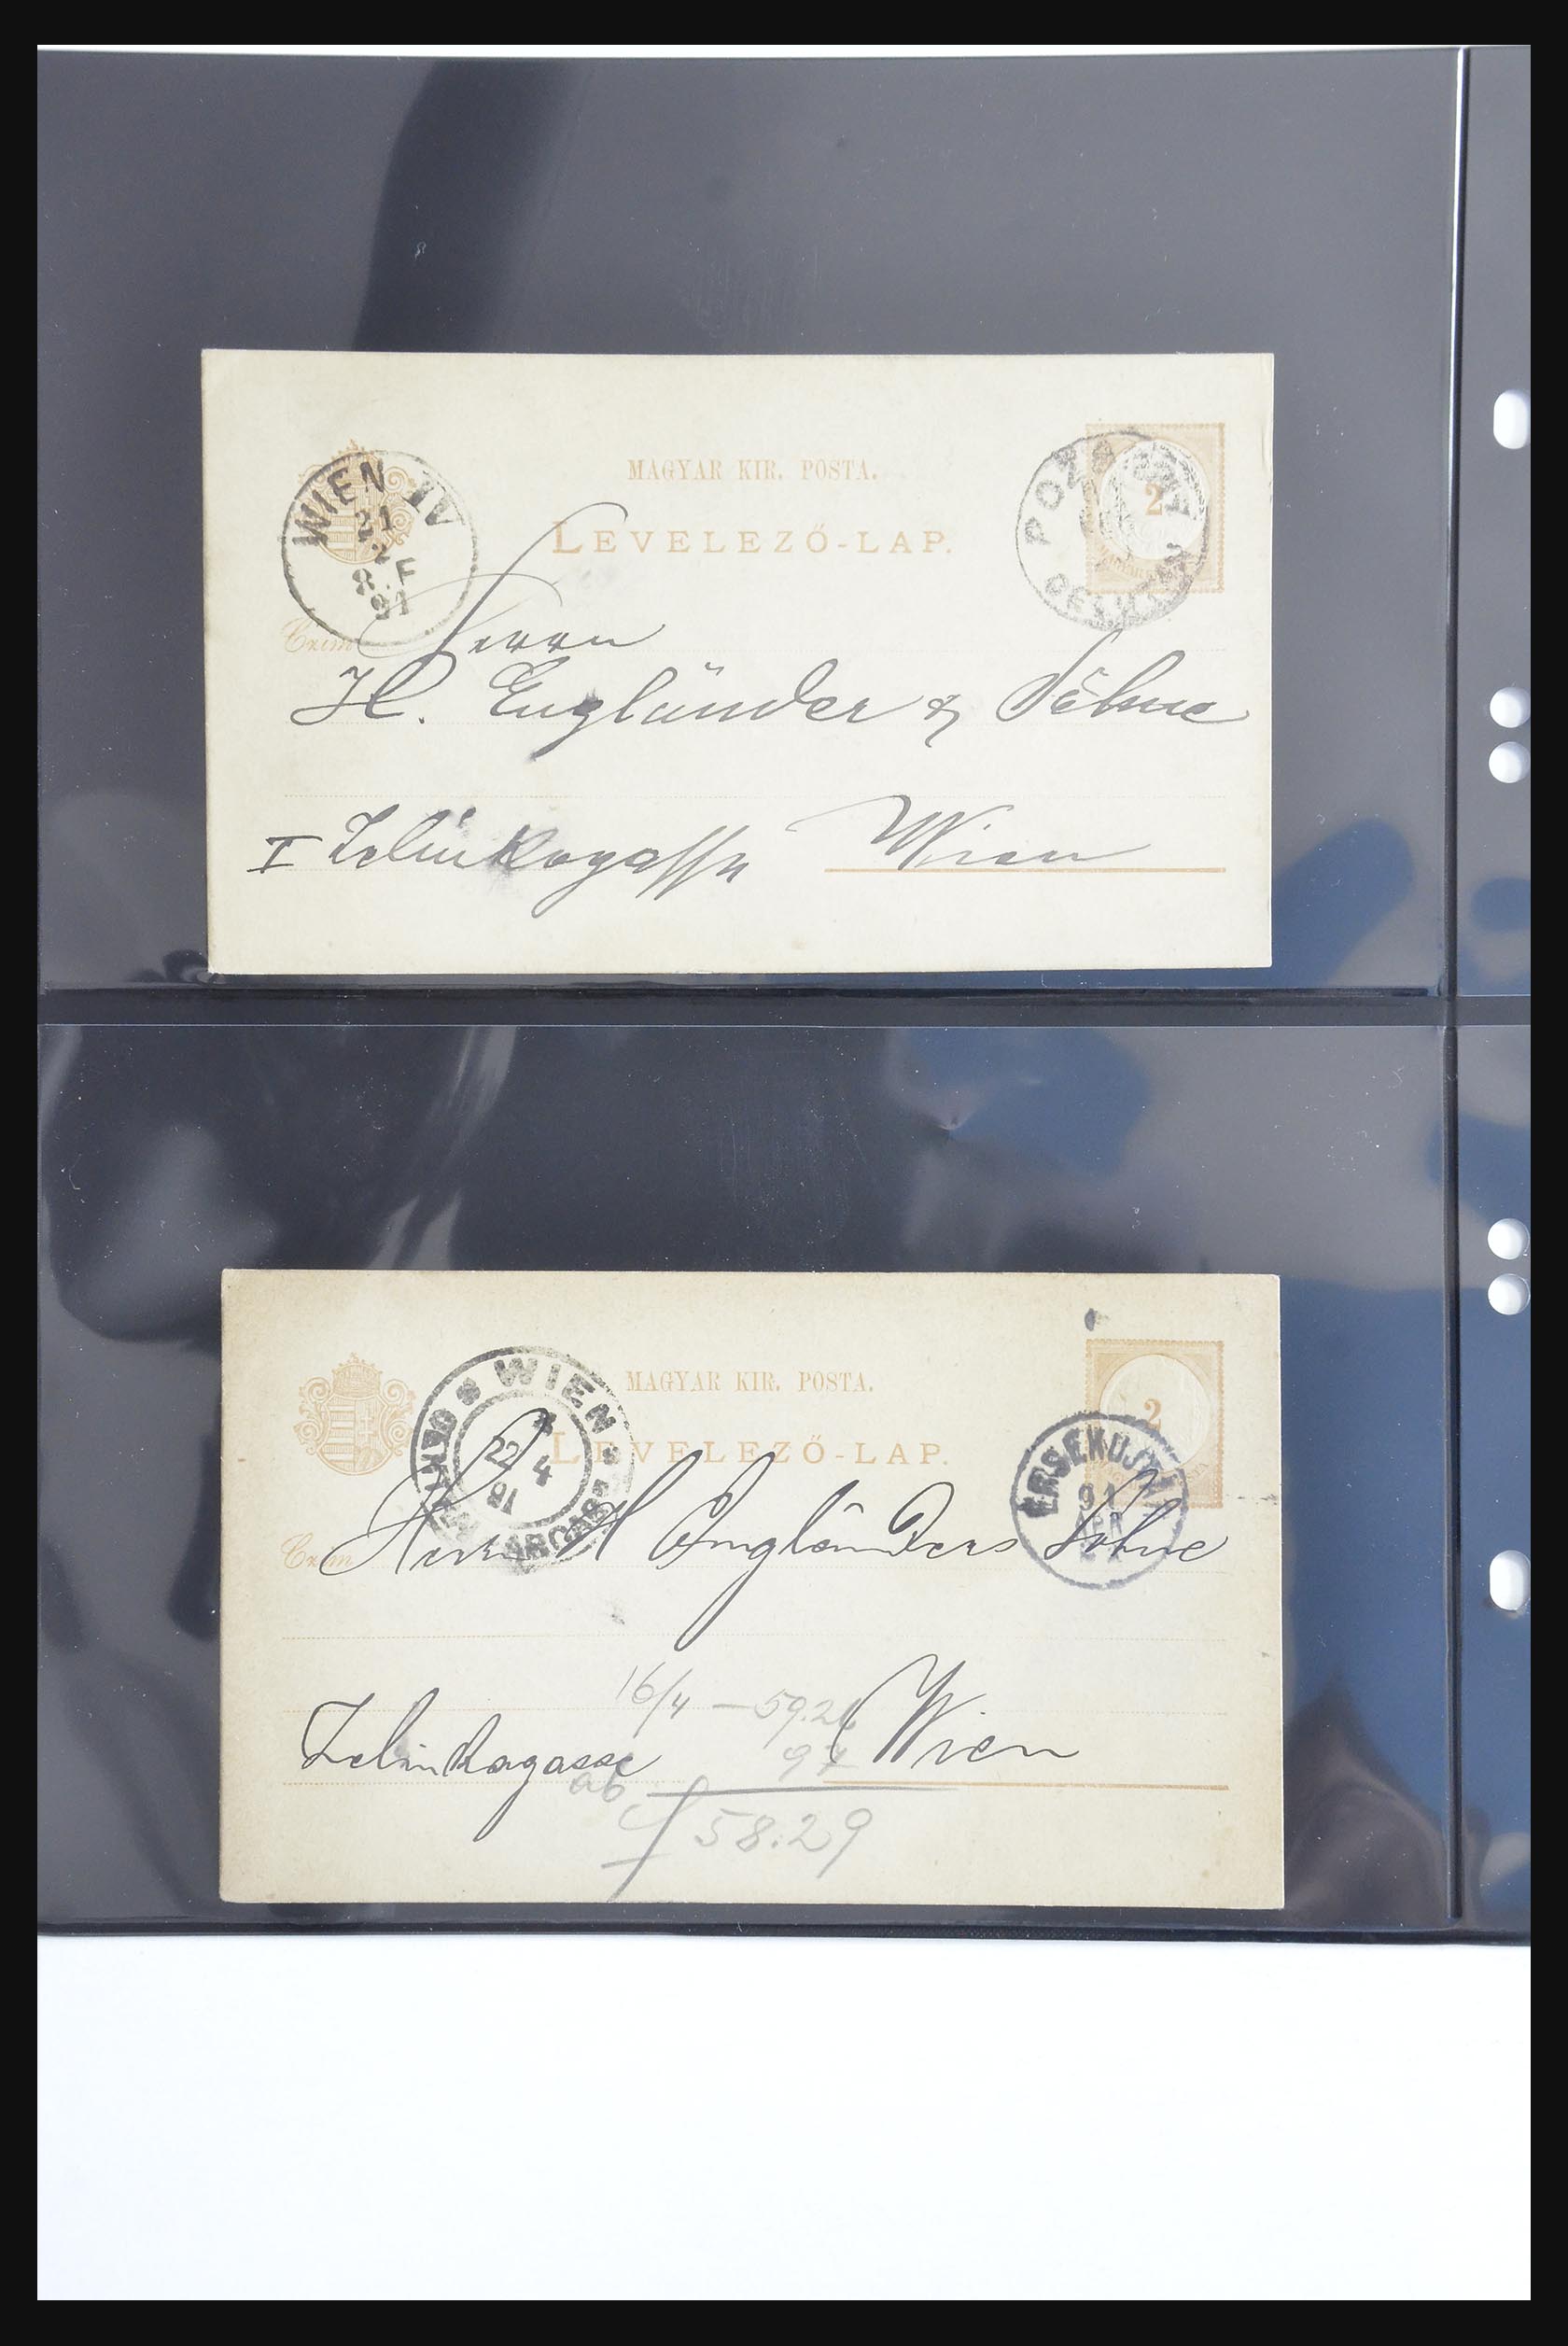 MAGYAR KIR. POSTA.
LEVELEZŐ-LAP.
WIEN IV
21
2
8 F
91
POZSONY
2
Czím
Herrn
H. Engländer & Söhne
I Zelinkagasse Wien
MAGYAR KIR. POSTA.
LEVELEZŐ-LAP.
WIEN
22 4
91
2
ÉRSEKUJVÁR
91
APR
Czím
Herrn H Engländers Söhne
16/4 — 59.26
97
Zelinkagasse Wien
ab
f 58.29